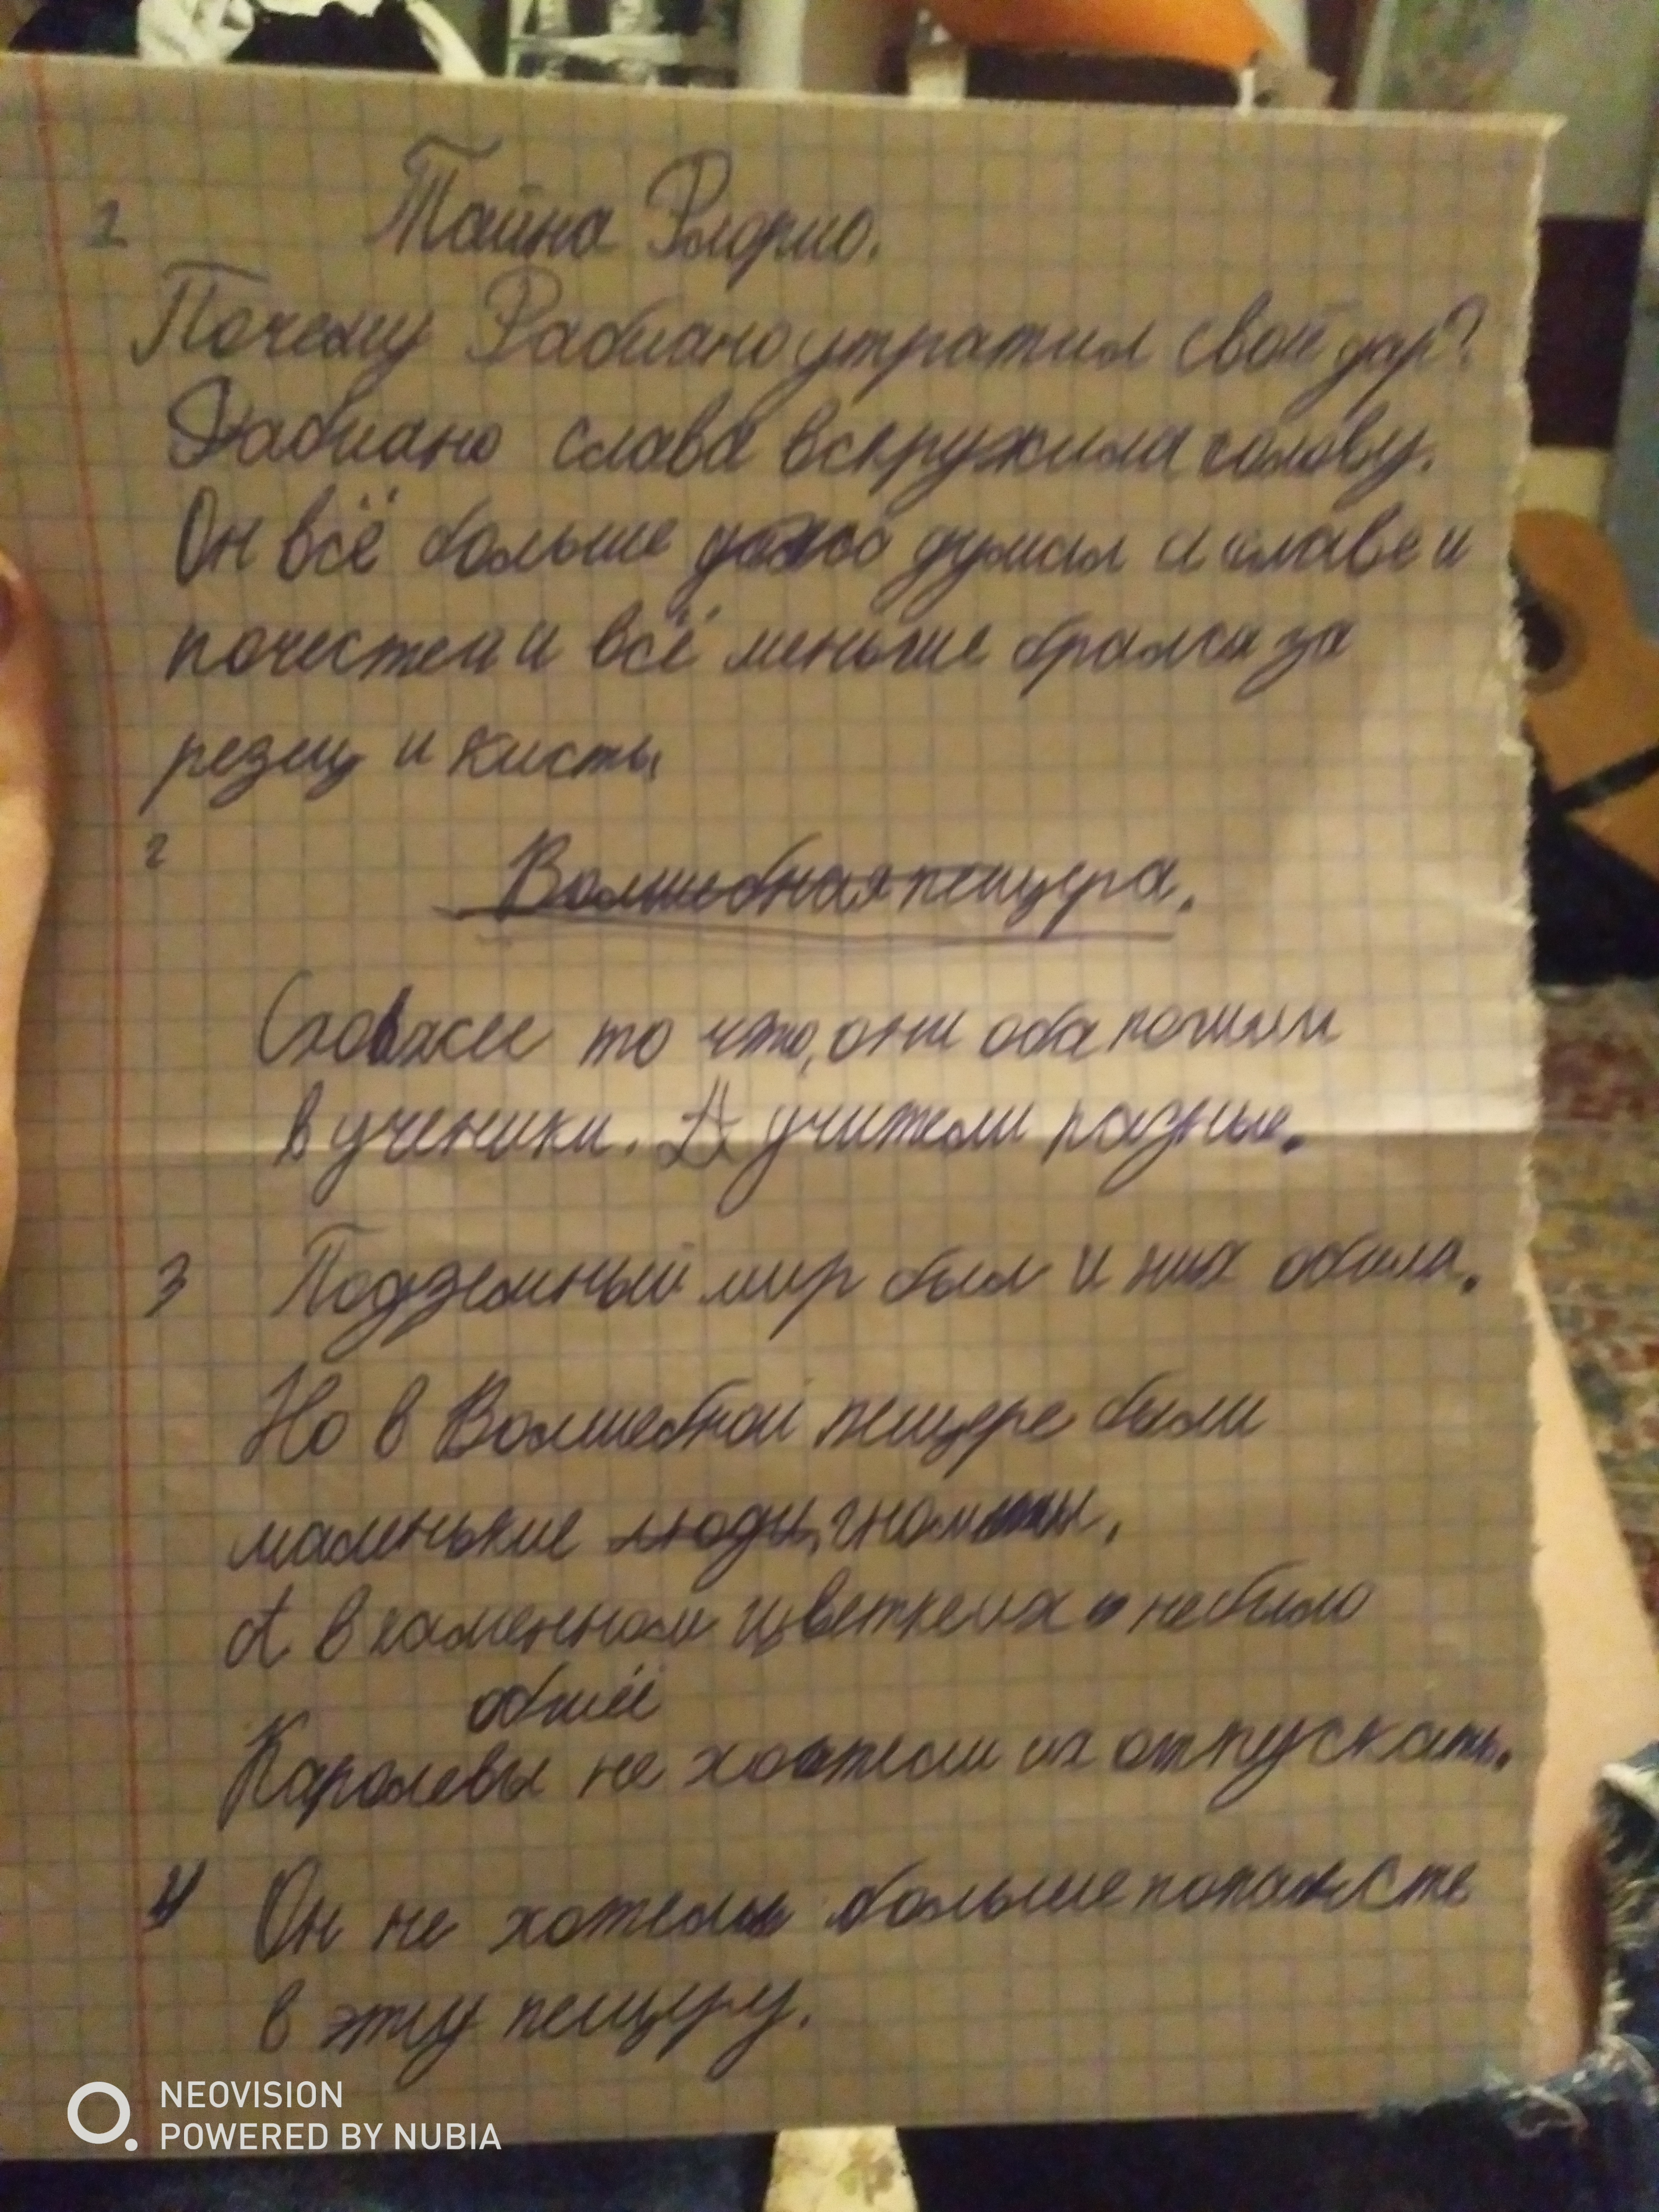 1 Тайна Флорио.
Почему Фабиано утратил свой дар?
Фабиано слава вскружила голову.
Он всё больше думал и славе и
почестеи и всё меньше брался за
резец и кисть.
2
Волшебная пещера.
то что, они оба пошли
в ученики. А учители разные.
3 Подземный мир был и них обоих.
Но в Волшебной пещере были
маленькие люди, гномы.
А в каменном цветке их не было
общее
Каролевы не хотели их отпускать.
4 Он не хотел больше попасть
в эту пещеру.
NEOVISION
POWERED BY NUBIA